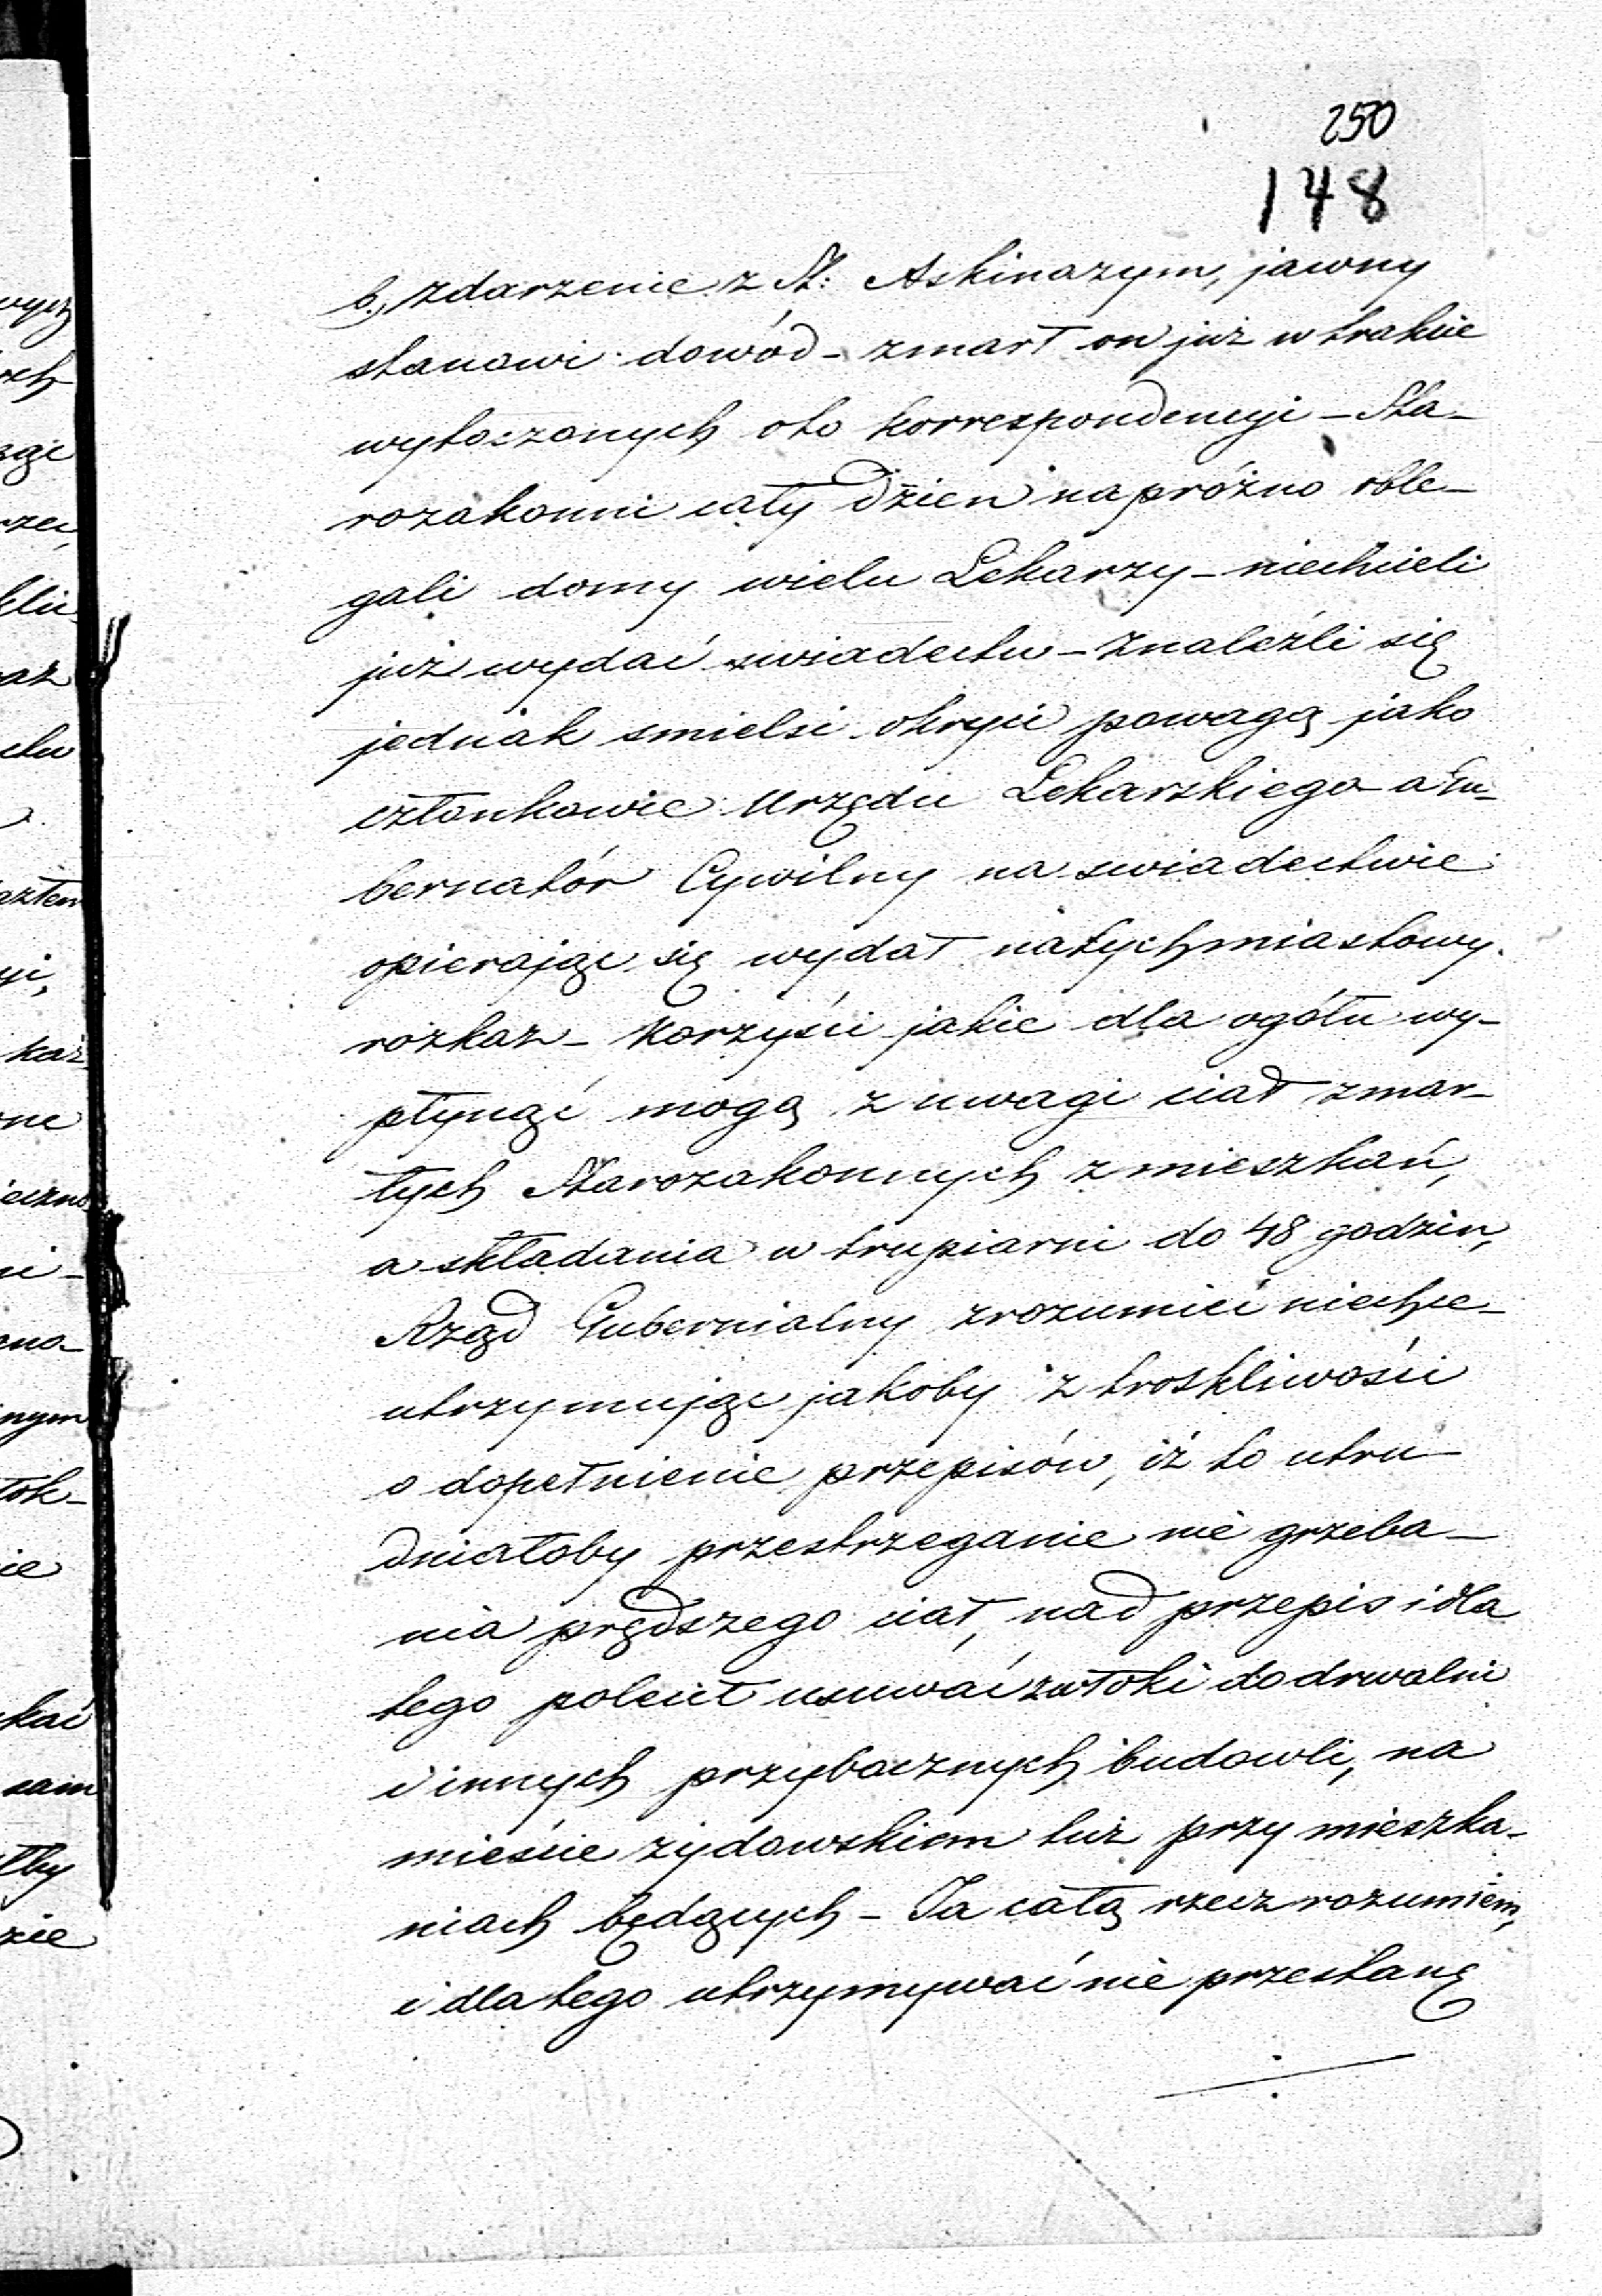 250
148
b., zdarzenie z St: Askinazym, jawny
stanowi dowód – zmarł on już w trakcie
wytoczonych oto korrespondencyi – Sta-
rozakonni cały dzień napróżno oble-
gali domy wielu Lekarzy – niechcieli
już wydać swiadectw – Znaleźli się
jednak smielsi okryci powagą jako
członkowie Urzędu Lekarskiego – a Gu-
bernatór Cywilny na swiadectwie
opierając się wydał natychmiastowy
rozkaz – Korzyści jakie dla ogółu wy-
płynąć mogą z uwagi ciał zmar-
łych Starozakonnych z mieszkań,
a składania w trupiarni do 48 godzin,
Rząd Gubernialny zrozumieć niechce –
utrzymując jakoby z troskliwości
o dopełnienie przepisów, iż to utru-
dniałoby przestrzeganie nie grzeba-
nia prędszego ciał, nad przepis i dla
tego polecił usuwać zwłoki do drwalni
i innych przybocznych budowli, na
mieście żydowskiem tuż przy mieszka-
niach będących – Ja całą rzecz rozumiem,
i dla tego utrzymywać nie przestanę
wych
rych
kaz
ne
nym
ie
kać
sam
łby
zie